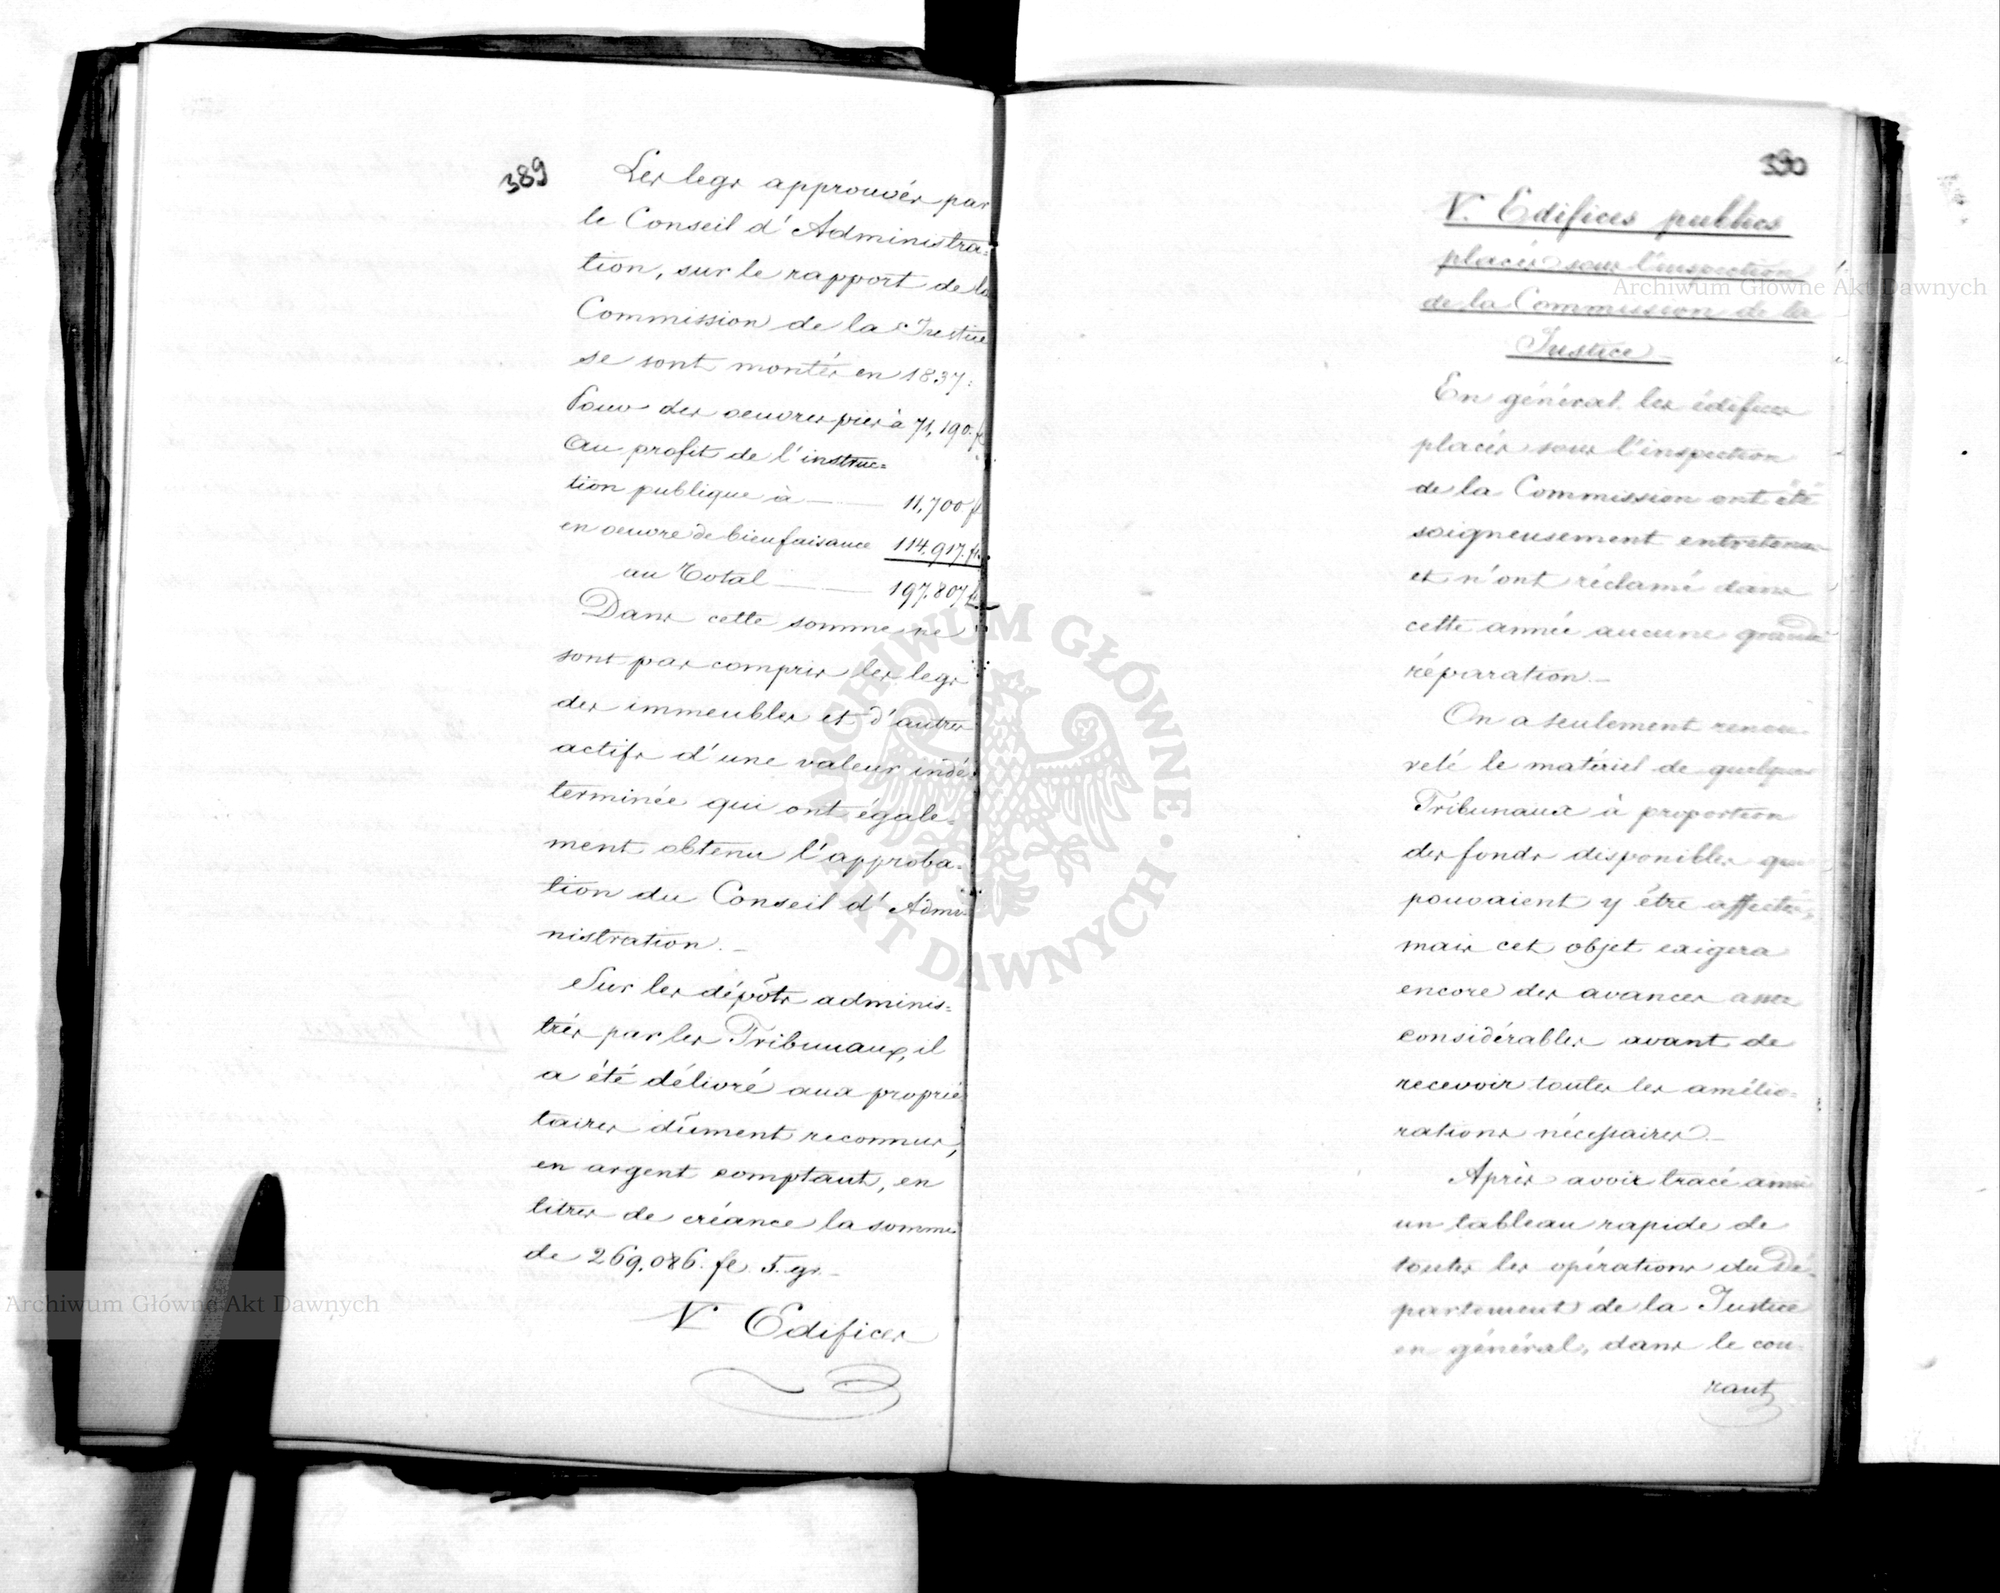 389
Les legs approuvés par
le Conseil d'Administra=
tion, sur le rapport de la
Commission de la Justice
se sont montés en 1837:
Pour des oeuvres pies à 71,190 fl
Au profit de l'instruc=
tion publique à — 11,700 fl
en oeuvre de bienfaisance 114,917. fl.
au Total — 197.807 fl
Dans cette somme ne
sont pas compris les legs
des immeubles et d'autres
actifs d'une valeur indé=
terminée qui ont égale=
ment obtenu l'approba=
tion du Conseil d'Admi=
nistration. —
Sur les dépôts adminis=
trés par les Tribunaux, il
a été délivré aux proprié
taires dûment reconnus,
en argent comptant, en
titres de créance la somme
de 269,086. fl. 5. gr. —
V Edifices
390
V. Edifices publics
placés sous l'inspection
de la Commission de la
Justice
En général les édifices
placés sous l'inspection
de la Commission ont été
soigneusement entretenus
et n'ont réclamé dans
cette année aucune grande
réparation. —
On a seulement renou
velé le matériel de quelques
Tribunaux à proportion
des fonds disponibles qui
pouvaient y être affectés,
mais cet objet exigera
encore des avances assez
considérables avant de
recevoir toutes les amélio=
rations nécessaires. —
Après avoir tracé ainsi
un tableau rapide de
toutes les opérations du Dé=
partement de la Justice
en général, dans le cou=
rant
Archiwum Główne Akt Dawnych
Archiwum Główne Akt Dawnych
ARCHIWUM GŁÓWNE · AKT DAWNYCH ·